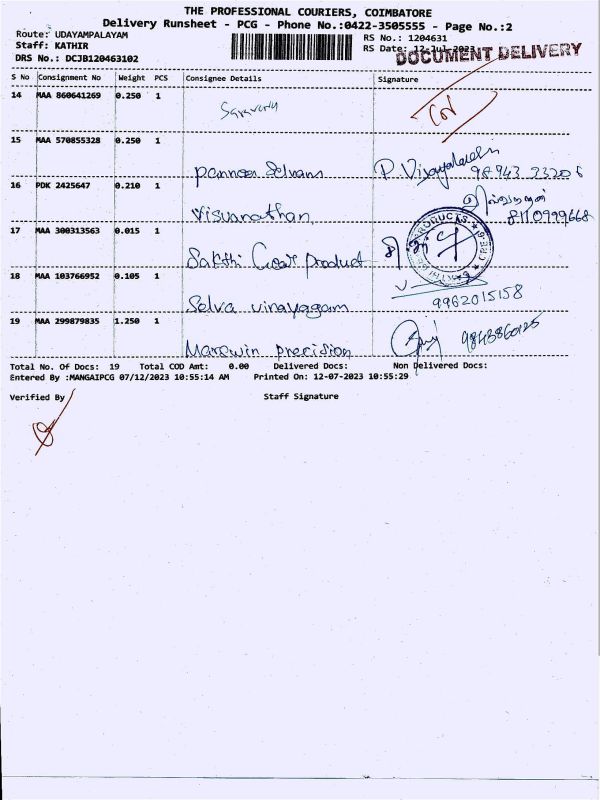 THE PROFESSIONAL COURIERS, COIMBATORE
Delivery Runsheet - PCG - Phone No.:0422-3505555 - Page No.:2
Route: UDAYAMPALAYAM
RS No.: 1204631
Staff: KATHIR
RS Date: 12-Jul-2023
DOCUMENT DELIVERY
DRS No.: DCJB120463102
S No Consignment No Weight PCS Consignee Details Signature
14 MAA 860641269 0.250 1
15 MAA 570855328 0.250 1 Selvam P. Vijayalakshmi
16 PDK 2425647 0.210 1 Visvanathan 8110999668
17 MAA 300313563 0.015 1 Sakthi Gear Product
18 MAA 103766952 0.105 1 Selva vinayagam 9962015158
19 MAA 299879835 1.250 1 precision
Total No. Of Docs: 19 Total COD Amt: 0.00 Delivered Docs: Non Delivered Docs:
Entered By :MANGAIPCG 07/12/2023 10:55:14 AM Printed On: 12-07-2023 10:55:29
Verified By Staff Signature